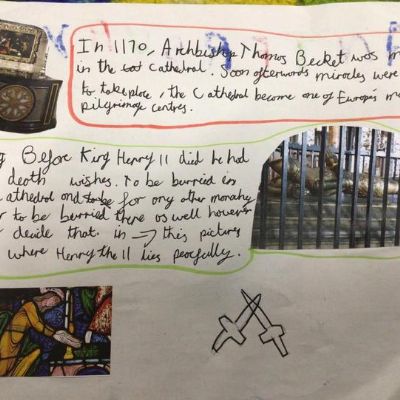 In 1170, Archbishop Thomas Becket was m
in the Cathedral. Soon afterwords miracles were
to take place, the Cathedral become one of Europes m
pilgrimage centres.
g Before King Henry II died he hd
death wishes. To be burried in
athedral and to be for any other monarchy
r to be burried there as well however
decide that in → this picture
where Henry the II lies pecfully.